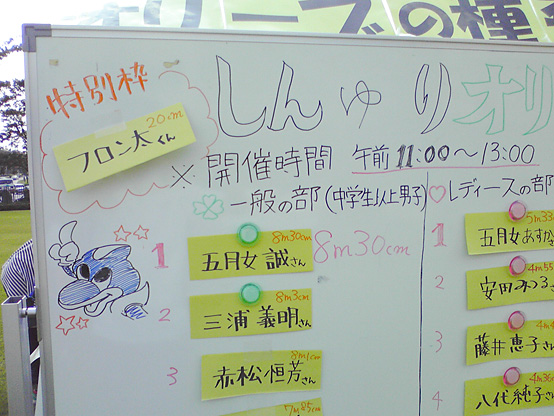 リーブの種
しんゆり オリ
特別枠
20cm
フロン太くん
※ 開催時間 午前 11:00～13:00
一般の部(中学生以上男子)
1
8m30cm
五月女 誠さん
8m30cm
2
8m3cm
三浦 義明さん
3
8m1cm
赤松 恒芳さん
7m85cm
♡レディースの部
1
5m33
五月女 あすか
2
4m55
安田 みつ子さ
3
4m4
藤井 恵子さ
4
4m36c
八代 純子さ